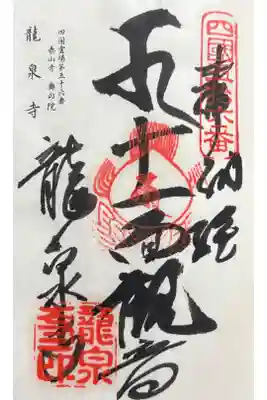 奉納経
十一面観音
龍泉寺
四国霊場第五十六番
泰山寺 奥の院
龍泉寺
龍泉
寺印